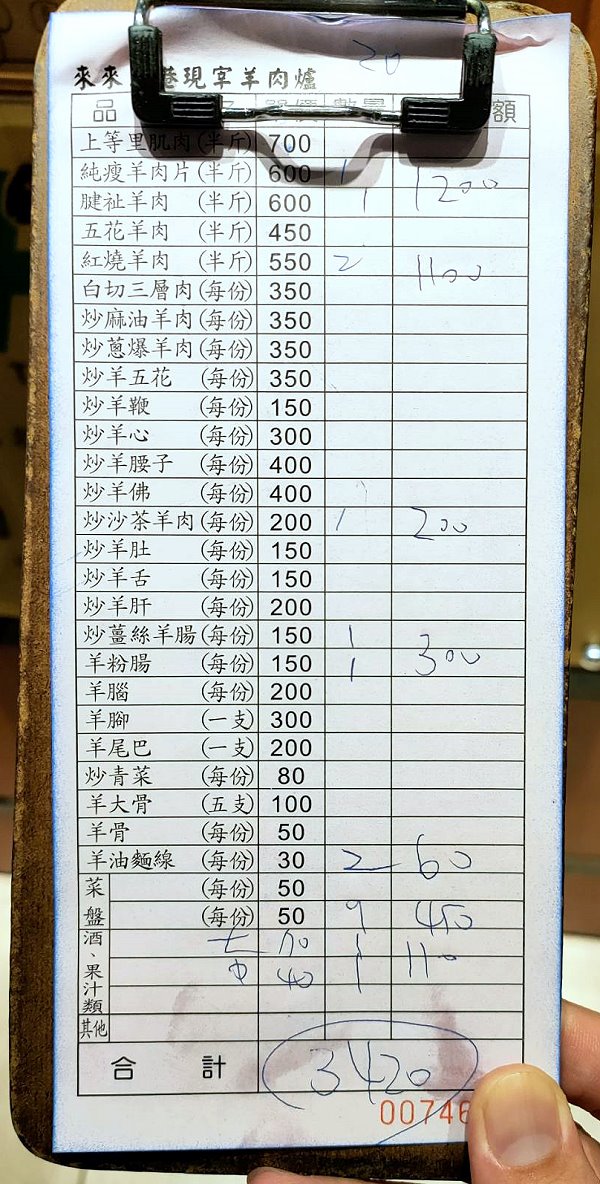 20
來來 港現宰羊肉爐
品 單價 數量 額
上等里肌肉(半斤) 700
純瘦羊肉片(半斤) 600 1
腱祉羊肉 (半斤) 600 1 1200
五花羊肉 (半斤) 450
紅燒羊肉 (半斤) 550 2 1100
白切三層肉(每份) 350
炒麻油羊肉(每份) 350
炒蔥爆羊肉(每份) 350
炒羊五花 (每份) 350
炒羊鞭 (每份) 150
炒羊心 (每份) 300
炒羊腰子 (每份) 400
炒羊佛 (每份) 400
炒沙茶羊肉(每份) 200 1 200
炒羊肚 (每份) 150
炒羊舌 (每份) 150
炒羊肝 (每份) 200
炒薑絲羊腸(每份) 150 1
羊粉腸 (每份) 150 1 300
羊腦 (每份) 200
羊腳 (一支) 300
羊尾巴 (一支) 200
炒青菜 (每份) 80
羊大骨 (五支) 100
羊骨 (每份) 50
羊油麵線 (每份) 30 2 60
菜盤 (每份) 50
(每份) 50 9 450
酒、果汁類 大 70 1
中 40 1 110
其他
合計 3420
00746